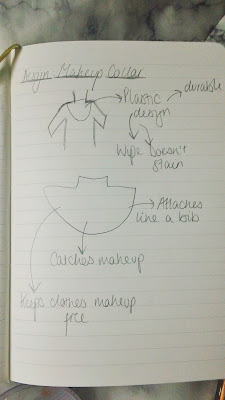 Design Makeup Collar
Plastic
design
durable
Wipe
Doesn't
stain
Attaches
like a bib
Catches makeup
Keeps clothes makeup
free